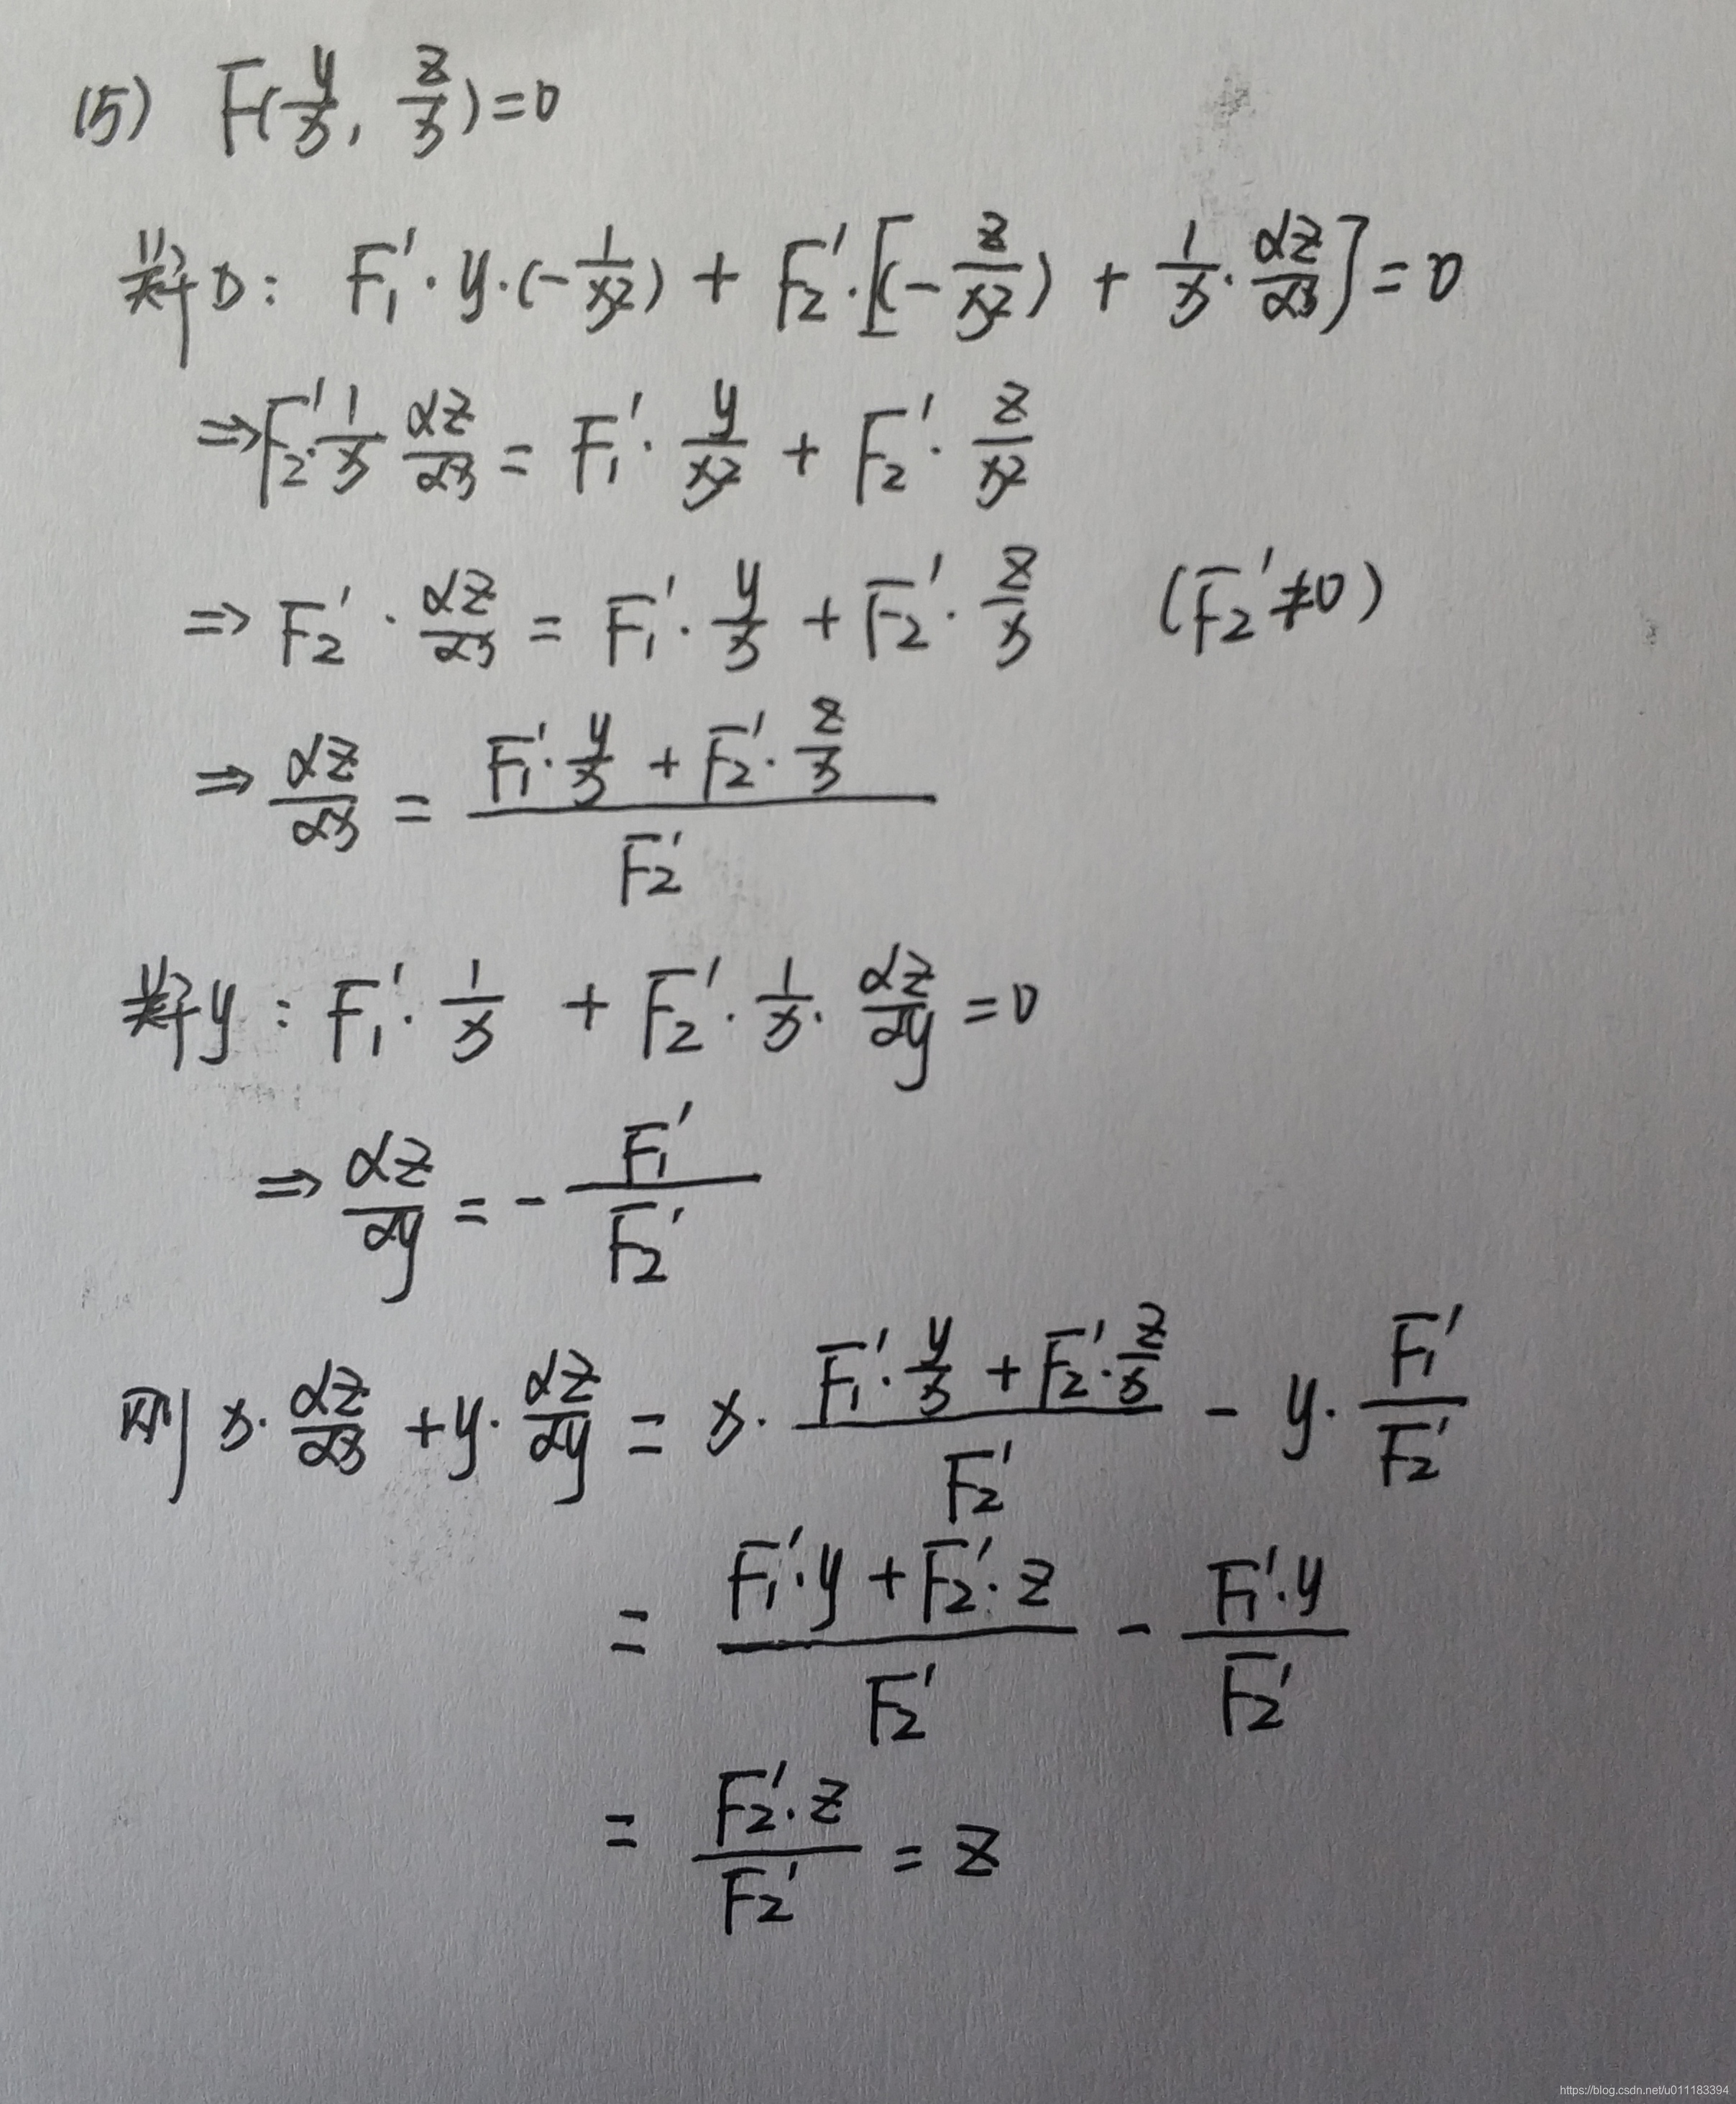 (5) F(y/x, z/x)=0
対x: F₁'·y·(-1/x²) + F₂'·[(-z/x²) + 1/x·∂z/∂x]=0
⇒F₂'·1/x ∂z/∂x = F₁'·y/x² + F₂'·z/x²
⇒ F₂'·∂z/∂x = F₁'·y/x + F₂'·z/x (F₂'≠0)
⇒ ∂z/∂x = (F₁'·y/x + F₂'·z/x)/F₂'
対y: F₁'·1/x + F₂'·1/x·∂z/∂y =0
⇒ ∂z/∂y = - F₁'/F₂'
则 x·∂z/∂x + y·∂z/∂y = x·(F₁'·y/x + F₂'·z/x)/F₂' - y·F₁'/F₂'
= (F₁'·y + F₂'·z)/F₂' - F₁'·y/F₂'
= F₂'·z/F₂' = z
https://blog.csdn.net/u011183394